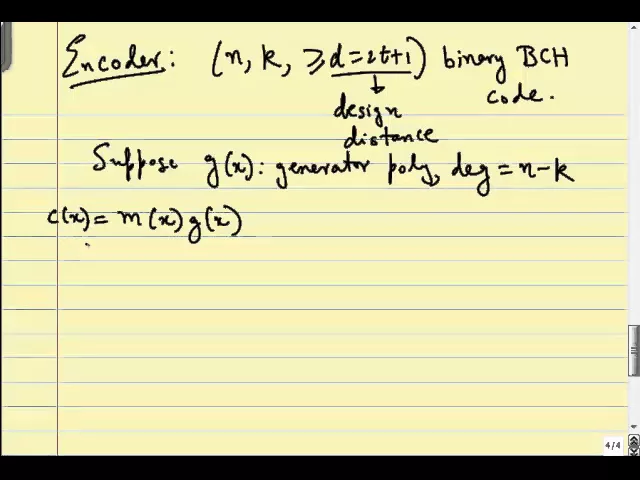 Encoder: (n, k, ≥d=2t+1) binary BCH
code.
↓
design
distance
Suppose g(x): generator poly, deg = n-k
c(x) = m(x) g(x)
4/4